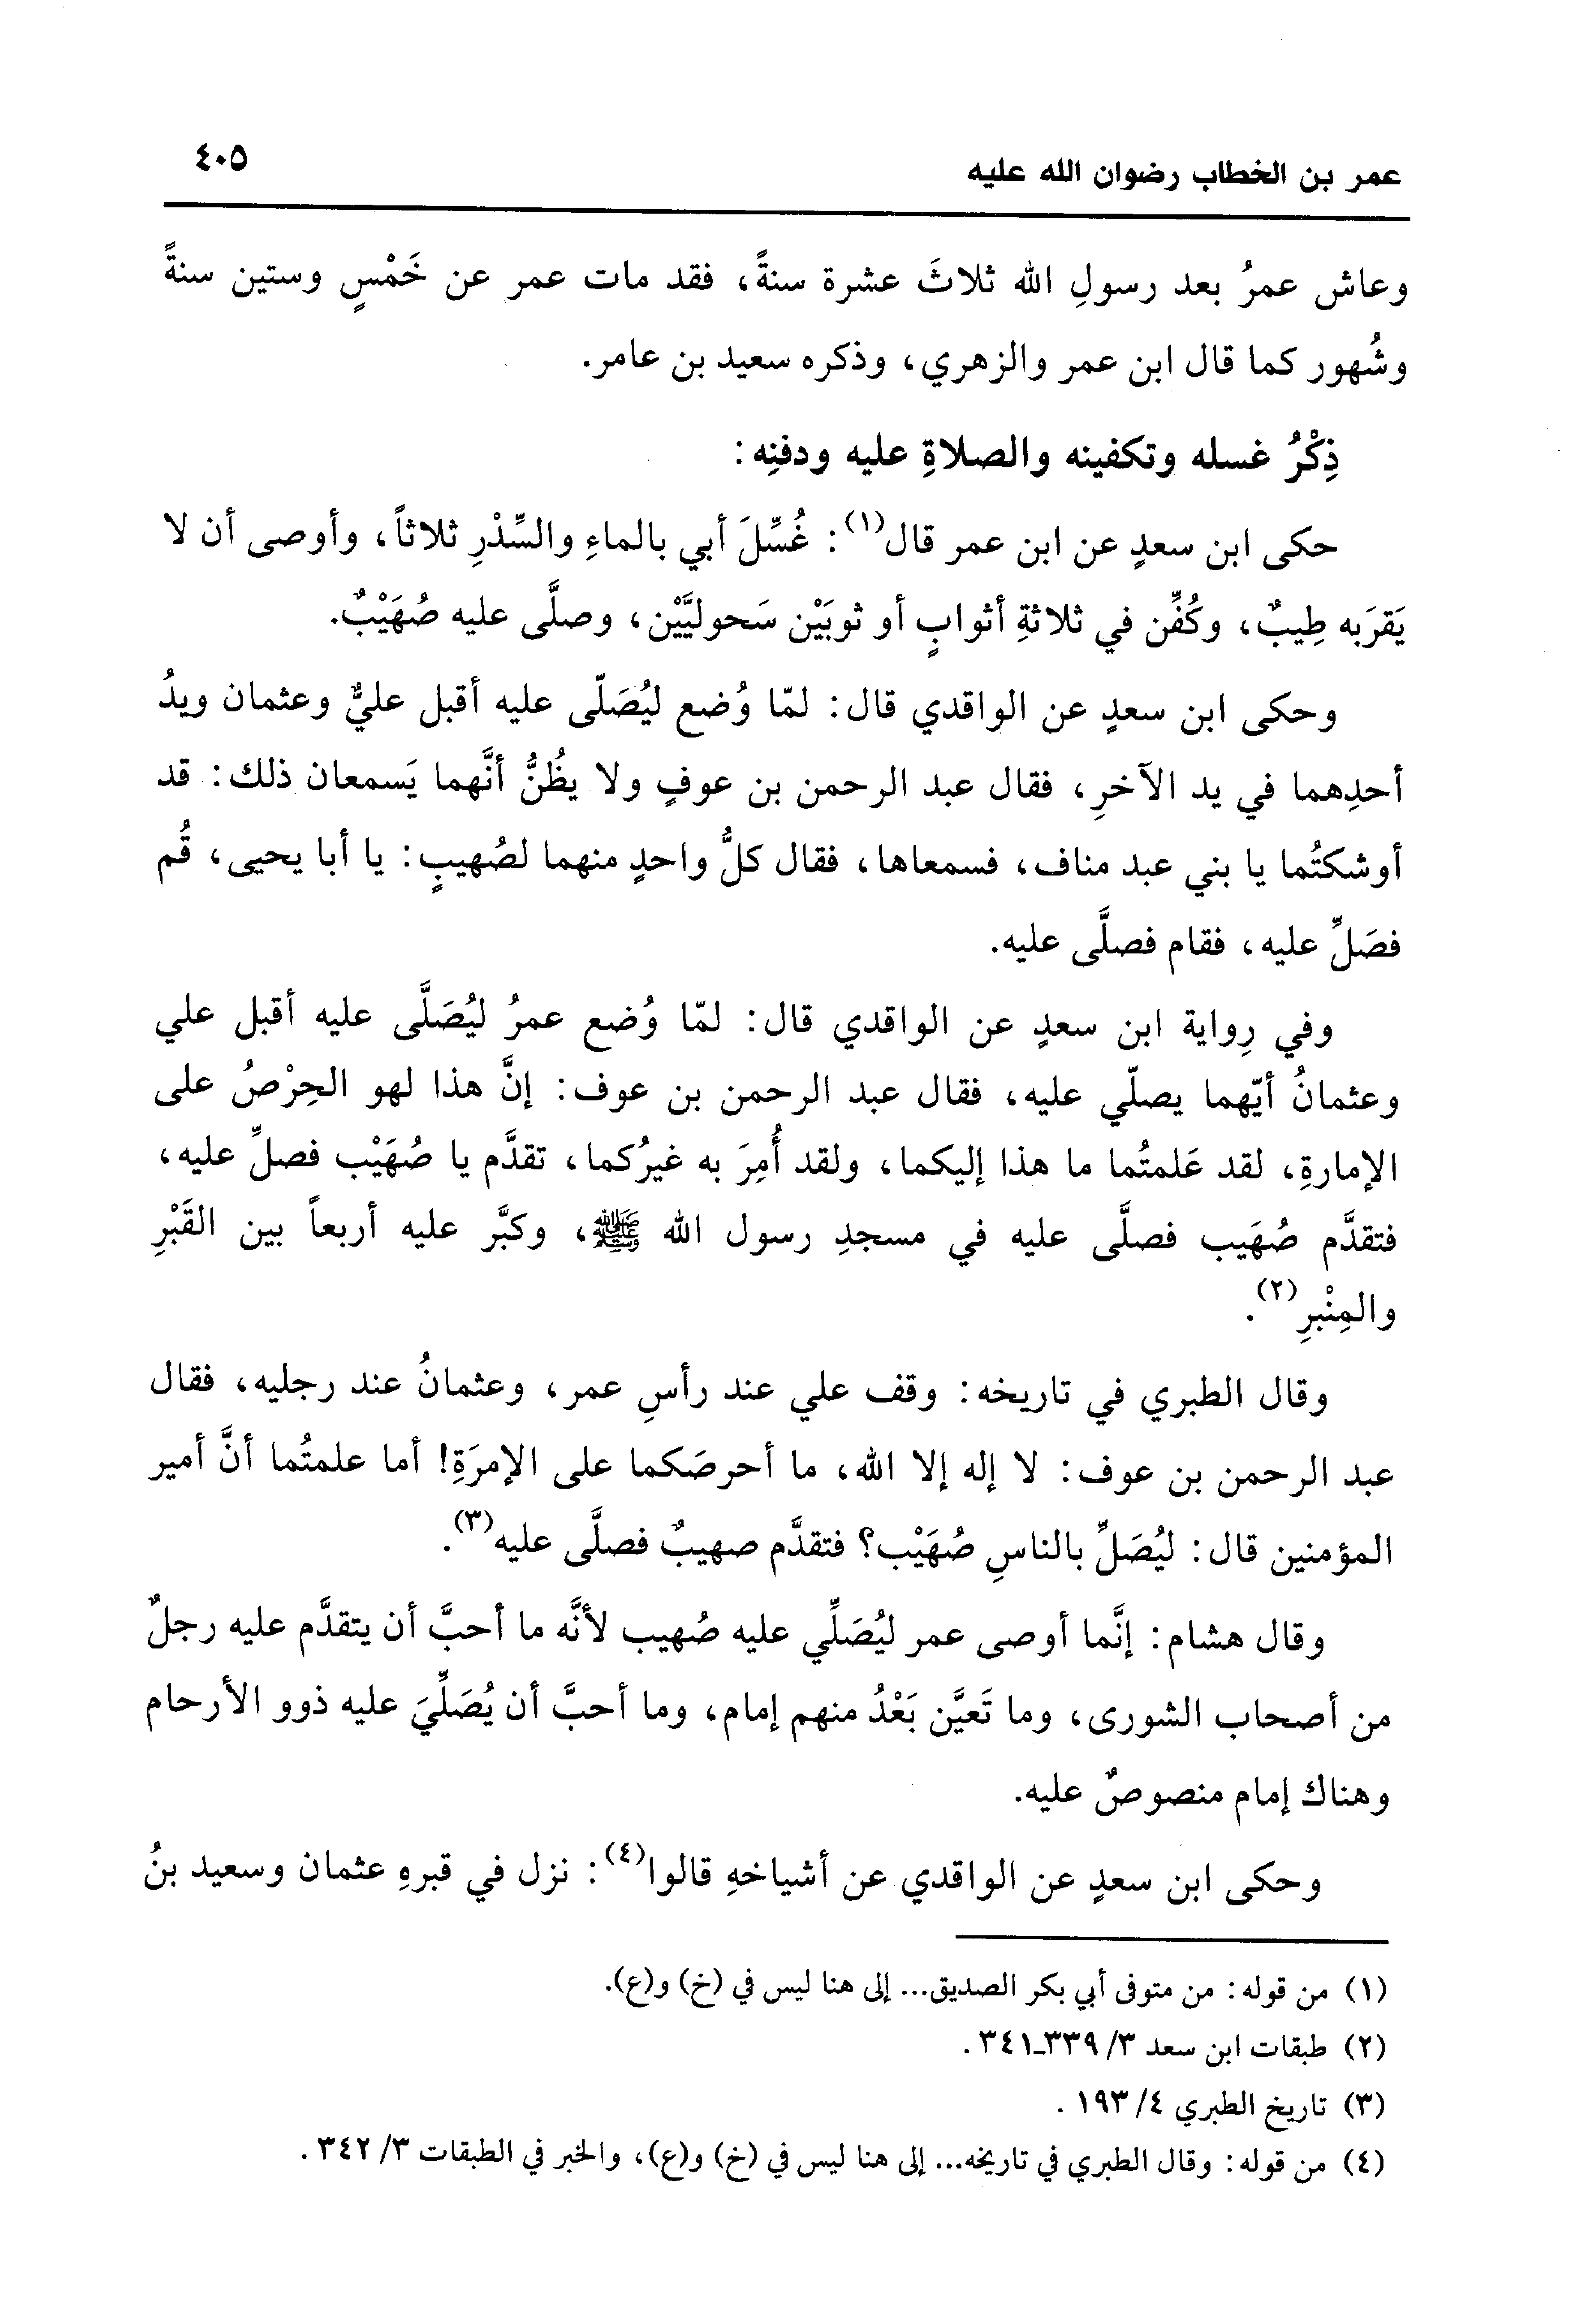 عمر بن الخطاب رضوان الله عليه
٤٠٥
وعاش عمرُ بعد رسولِ الله ثلاثَ عشرة سنةً، فقد مات عمر عن خَمْسٍ وستين سنةً
وشُهور كما قال ابن عمر والزهري، وذكره سعيد بن عامر.
ذِكْرُ غسله وتكفينه والصلاةِ عليه ودفنِه:
حكى ابن سعدٍ عن ابن عمر قال(١): غُسِّلَ أبي بالماءِ والسِّدْرِ ثلاثاً، وأوصى أن لا
يَقرَبه طِيبٌ، وكُفِّن في ثلاثةِ أثوابٍ أو ثوبَيْن سَحوليَّيْن، وصلَّى عليه صُهَيْبٌ.
وحكى ابن سعدٍ عن الواقدي قال: لمّا وُضع ليُصَلّى عليه أقبل عليٌّ وعثمان ويدُ
أحدِهما في يد الآخرِ، فقال عبد الرحمن بن عوفٍ ولا يظُنُّ أنَّهما يَسمعان ذلك: قد
أوشكتُما يا بني عبد مناف، فسمعاها، فقال كلُّ واحدٍ منهما لصُهيبٍ: يا أبا يحيى، قُم
فصَلِّ عليه، فقام فصلَّى عليه.
وفي رِواية ابن سعدٍ عن الواقدي قال: لمّا وُضع عمرُ ليُصَلَّى عليه أقبل علي
وعثمانُ أيّهما يصلّي عليه، فقال عبد الرحمن بن عوف: إنَّ هذا لهو الحِرْصُ على
الإمارةِ، لقد عَلمتُما ما هذا إليكما، ولقد أُمِرَ به غيرُكما، تقدَّم يا صُهَيْب فصلِّ عليه،
فتقدَّم صُهَيب فصلَّى عليه في مسجدِ رسول الله ﷺ، وكبَّر عليه أربعاً بين القَبْرِ
والمِنْبرِ(٢).
وقال الطبري في تاريخه: وقف علي عند رأسِ عمر، وعثمانُ عند رجليه، فقال
عبد الرحمن بن عوف: لا إله إلا الله، ما أحرصَكما على الإمرَةِ! أما علمتُما أنَّ أمير
المؤمنين قال: ليُصَلِّ بالناسِ صُهَيْب؟ فتقدَّم صهيبٌ فصلَّى عليه(٣).
وقال هشام: إنَّما أوصى عمر ليُصَلِّي عليه صُهيب لأنَّه ما أحبَّ أن يتقدَّم عليه رجلٌ
من أصحاب الشورى، وما تَعيَّن بَعْدُ منهم إمام، وما أحبَّ أن يُصَلِّيَ عليه ذوو الأرحام
وهناك إمام منصوصٌ عليه.
وحكى ابن سعدٍ عن الواقدي عن أشياخهِ قالوا(٤): نزل في قبرهِ عثمان وسعيد بنُ
(١) من قوله: من متوفى أبي بكر الصديق... إلى هنا ليس في (خ) و(ع).
(٢) طبقات ابن سعد ٣/ ٣٣٩ـ٣٤١ .
(٣) تاريخ الطبري ٤/ ١٩٣ .
(٤) من قوله: وقال الطبري في تاريخه... إلى هنا ليس في (خ) و(ع)، والخبر في الطبقات ٣/ ٣٤٢ .